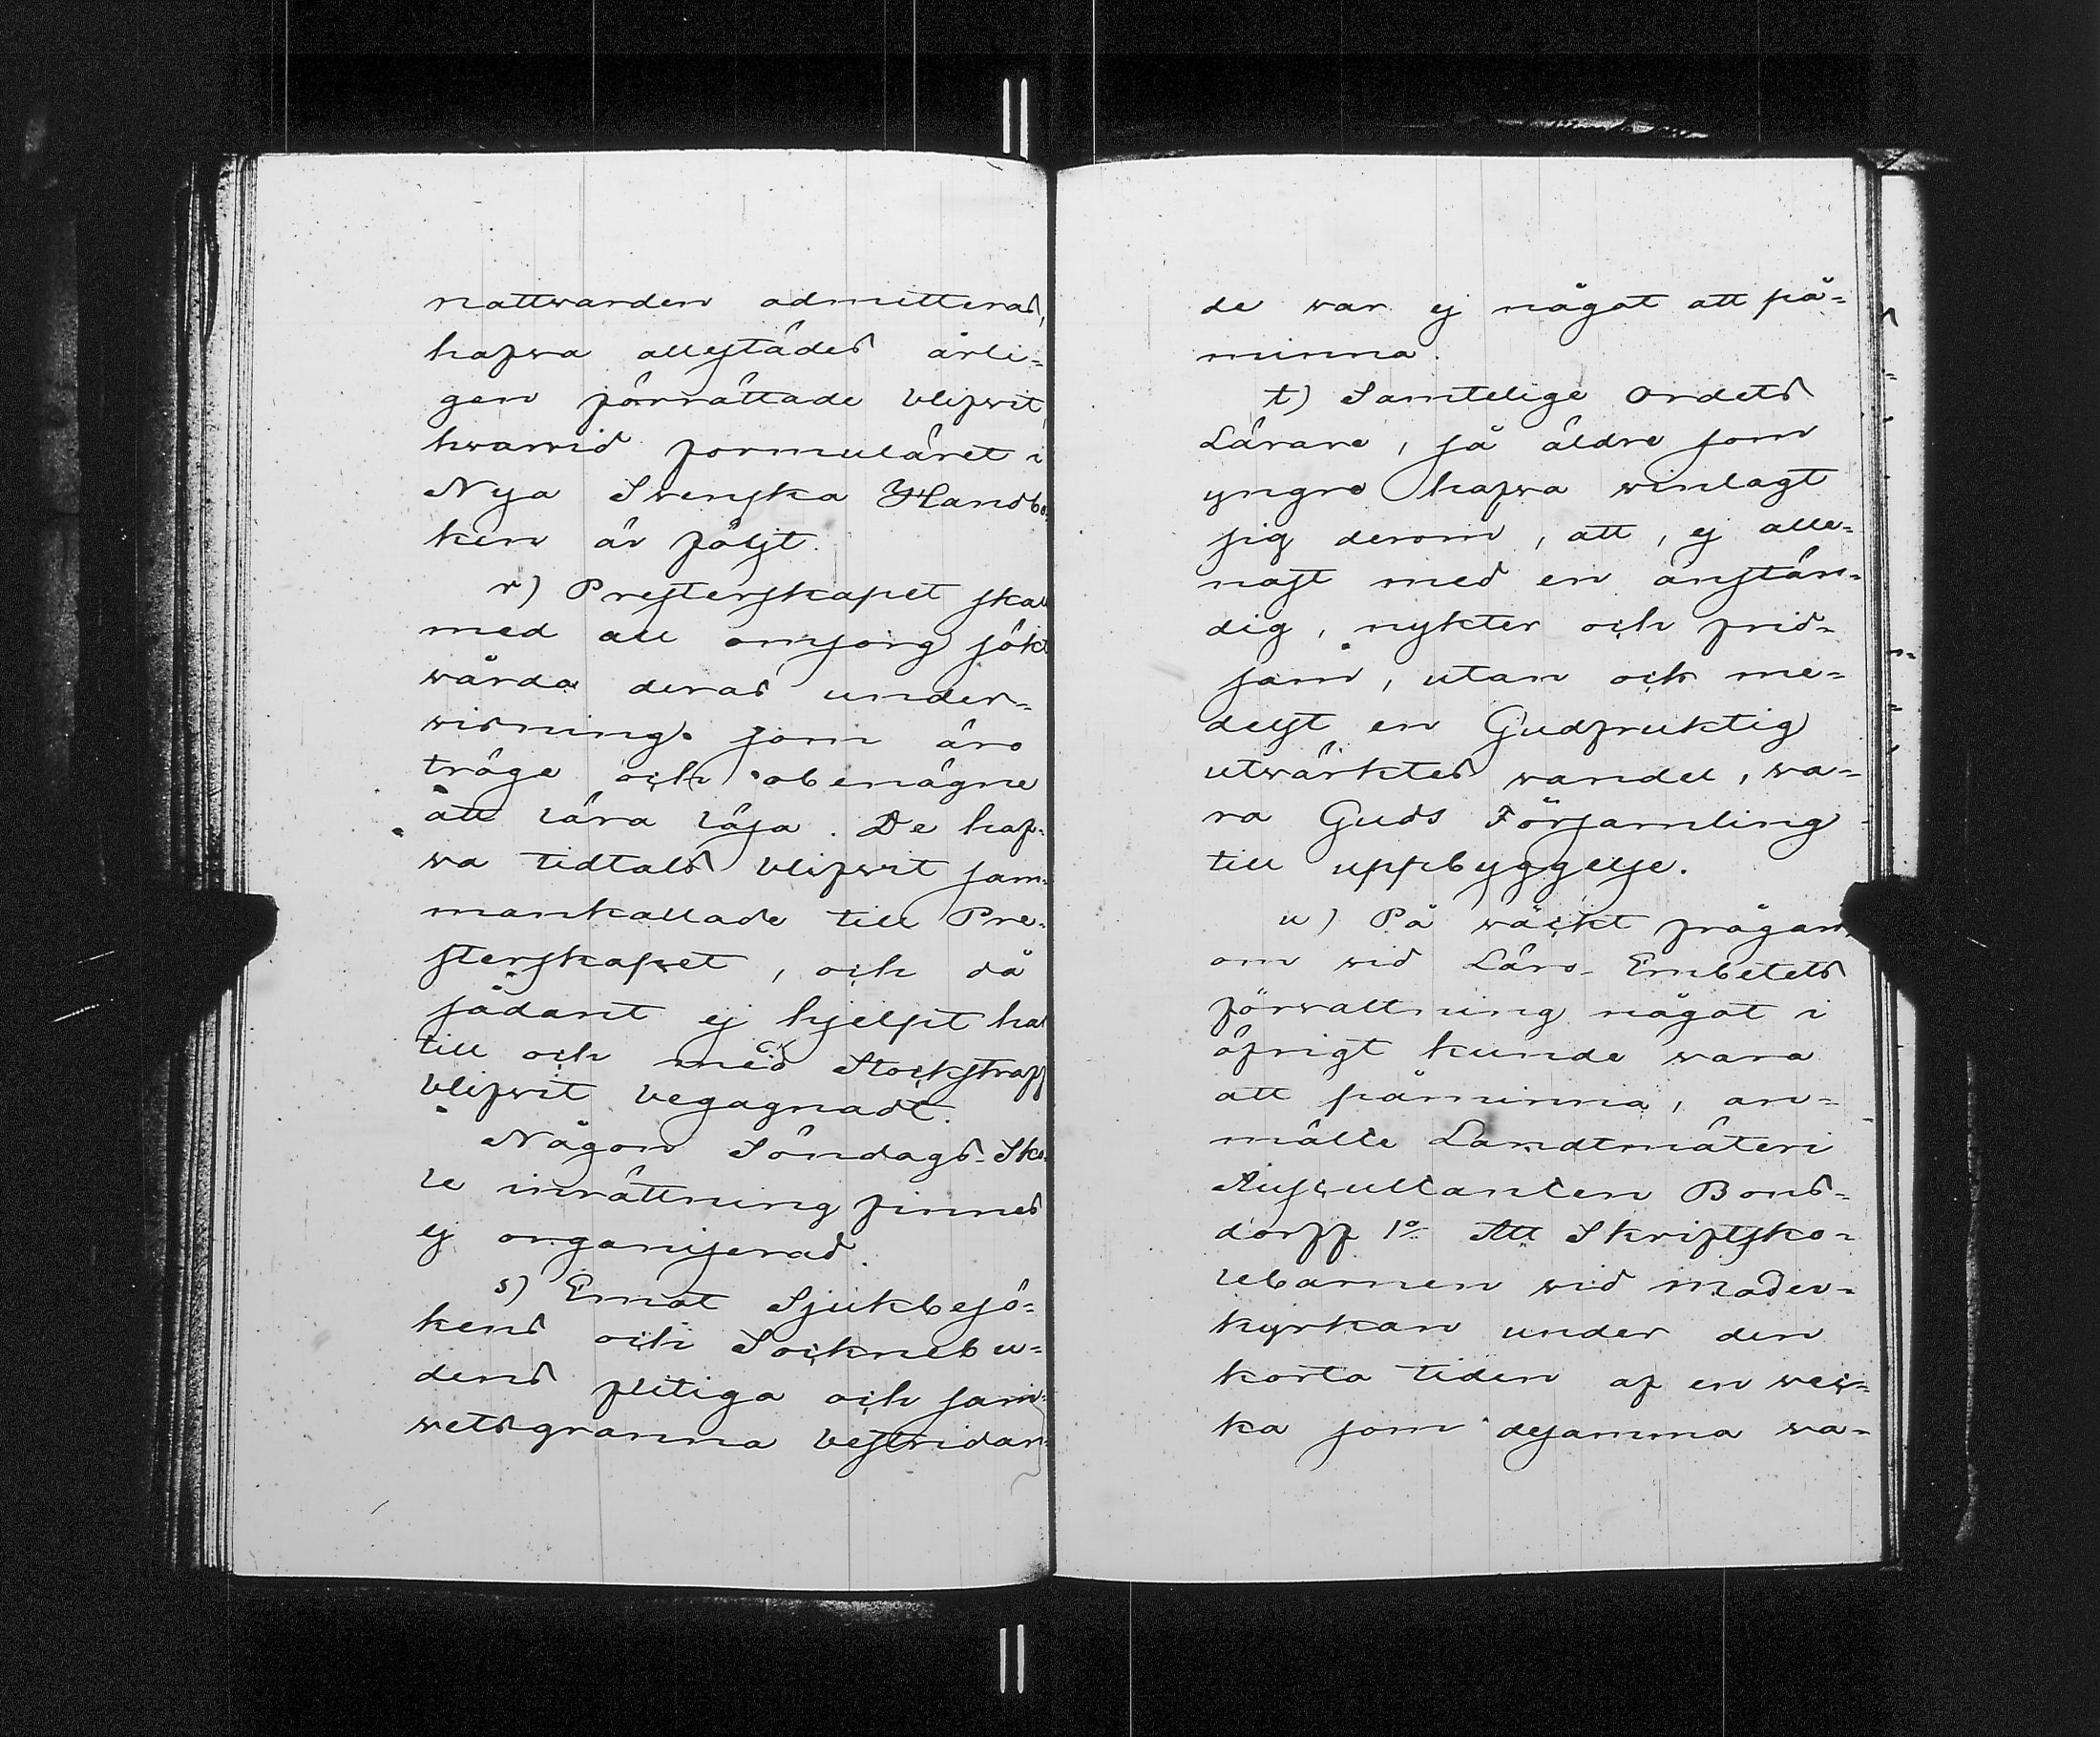 nattwarden admitteras,
hafwa allestädes årli-
gen förrättade blifwit,
hwarvid formuläret i
Nya Svenska Handbo-
ken är följt.
r) Presterskapet skall
med all omsorg sökt
wårda deras under-
wisning som äro
tröge och obenägne
att lära läsa. De haf-
wa tidtals blifwit sam-
mankallade till Pre-
sterskapet, och då
sådant ej hjelpt har
till och med Stockstraff
blifwit begagnadt.
Någon Söndags-Sko-
le inrättning finnes
ej organiserad.
s) Emot Sjukbesö-
kens och Socknebu-
dens flitiga och sam-
wetsgranna bestridan-
de war ej något att på-
minna.
t) Samtelige Ordets
Lärare, så äldre som
yngre hafwa winlagt
sig derom, att, ej alle-
nast med en anstän-
dig, nykter och frid-
sam, utan ock me-
delst en Gudfruktig
utwärktes wandel, wa-
ra Guds Församling
till uppbyggelse.
u) På wäckt frågan,
om wid Läro-Embetets
förwaltning något i
öfrigt kunde wara
att påminna, an-
mälte Landtmäteri
Auscultanten Bons-
dorff 1o Att Skriftsko-
lebarnen wid Moder-
kyrkan under den
korta tiden af en wec-
ka som desamma wa-